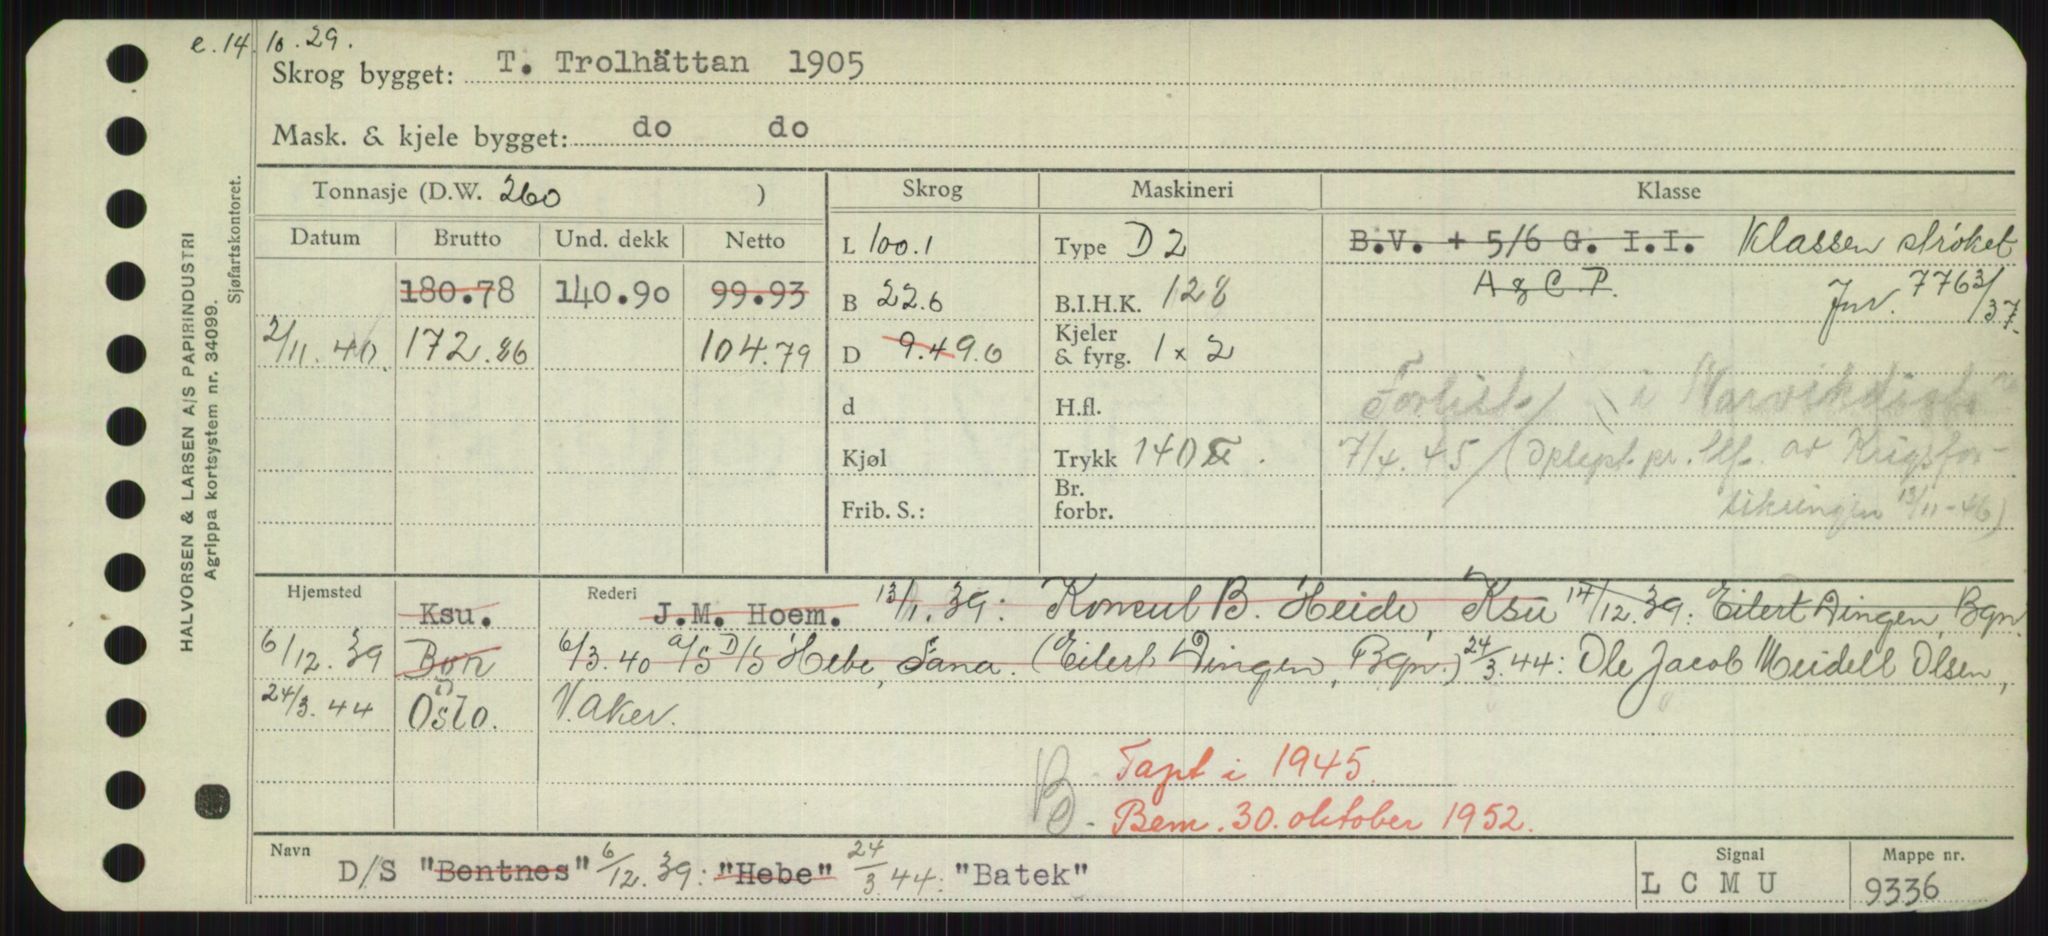 e.14.10.29.
Skrog bygget: T. Trolhättan 1905
Mask. & kjele bygget: do do
HALVORSEN & LARSEN A/S PAPIRINDUSTRI
Agrippa kortsystem nr. 34099.
Sjøfartskontoret.
Tonnasje (D.W. 260 )
Skrog
Maskineri
Klasse
Datum Brutto Und. dekk Netto
180.78 140.90 99.93
2/11.40. 172.86 104.79
L 100.1
B 22.6
D 9.4 9.0
d
Kjøl
Frib. S.:
Type D2
B.I.H.K. 128
Kjeler
& fyrg. 1 x 2
H.fl.
Trykk 140
Br.
forbr.
B.V. + 5/6 G. I.I. Klassen strøket
A & C.P. Jnr. 7763/37.
Forlist i
7/4.45 (Oplyst pr. tlf. av Krigsfor-
sikringen 13/11-46)
Hjemsted Ksu. Rederi J.M. Hoem. 13/1.39: Konsul B. Heide, Ksu 14/12.39: Eilert Dingen, Bgn.
6/12.39 6/3.40 A/S D/S Hebe, Sana. (Eilert Dingen, Bgn.) 24/3.44: Ole Jacob Meidell Olsen,
24/3.44 Oslo. V. Aker.
Tapt i 1945.
Bem. 30. oktober 1952.
Navn D/S "Bentnes" 6/12.39: "Hebe" 24/3.44: "Batek"
Signal
L C M U
Mappe nr.
9336